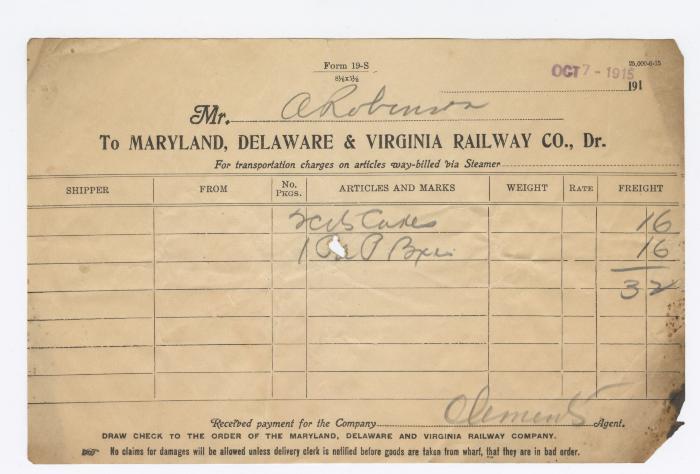 Form 19-S
8½x5½
25,000-6-15
OCT 7 - 1915
191
Mr. A Robinson
To MARYLAND, DELAWARE & VIRGINIA RAILWAY CO., Dr.
For transportation charges on articles way-billed via Steamer
SHIPPER FROM No. PKGS. ARTICLES AND MARKS WEIGHT RATE FREIGHT
2 Cakes 16
1 P 16
32
Received payment for the Company Clements Agent.
DRAW CHECK TO THE ORDER OF THE MARYLAND, DELAWARE AND VIRGINIA RAILWAY COMPANY.
No claims for damages will be allowed unless delivery clerk is notified before goods are taken from wharf, that they are in bad order.